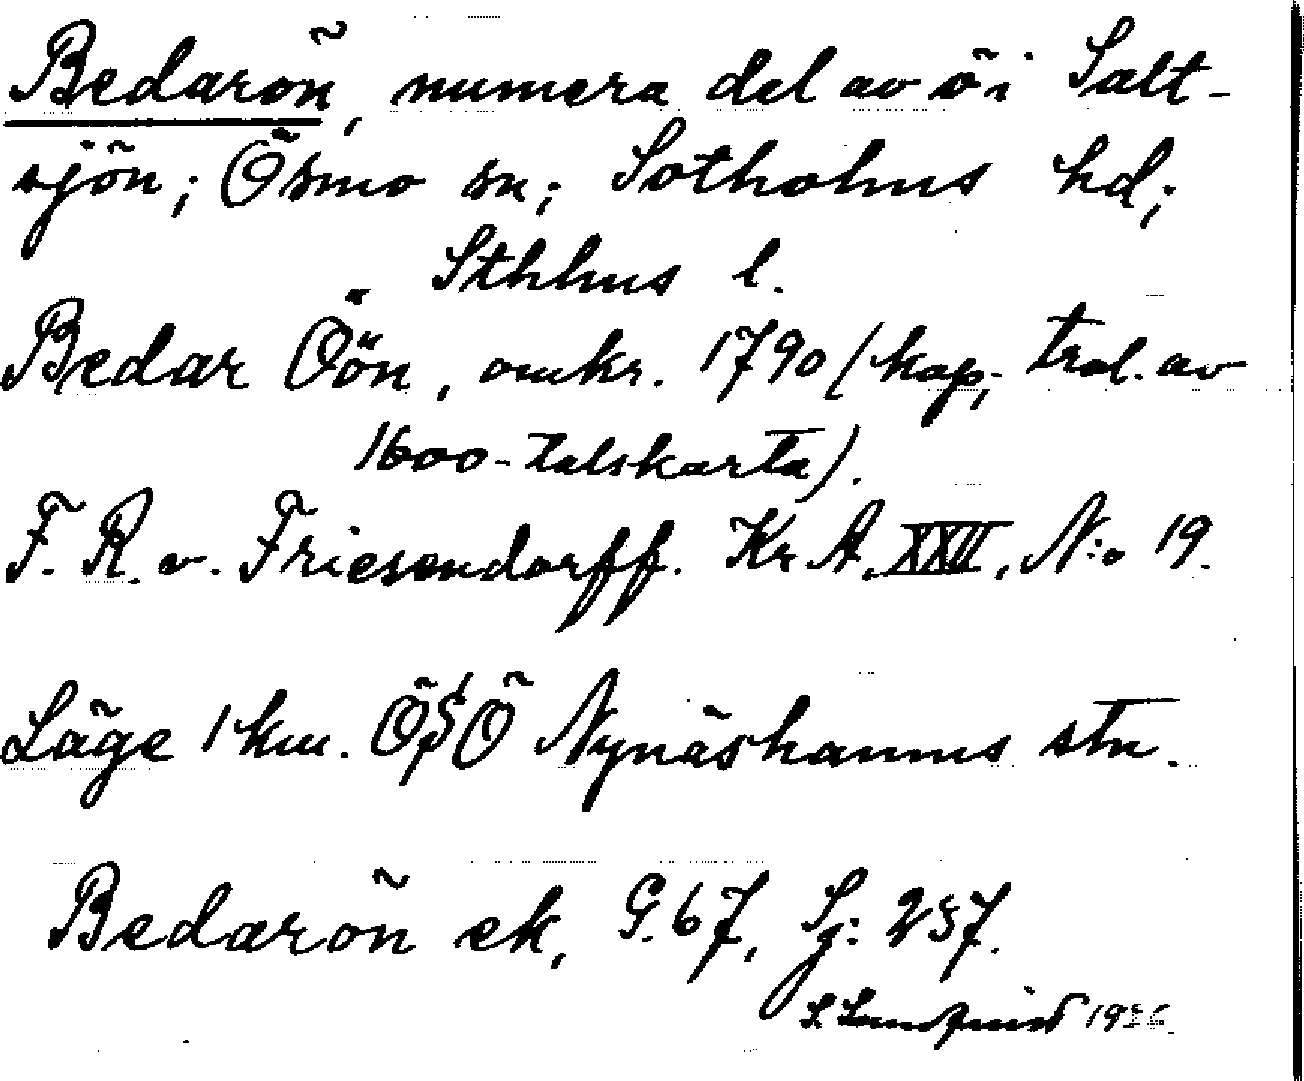 Bedarön, numera del av ö i Salt-
sjön; Ösmo sn; Sotholms hd;
Sthlms l.
Bedar Öön, omkr. 1790 (kop; trol. av
1600-talskarta).
F. R. v. Friesendorff. Kr A, XXII, N:o 19.
Läge 1 km. ÖSÖ Nynäshamns stn.
Bedarön ek, G. 67, Sj: 257.
S. Lundquist